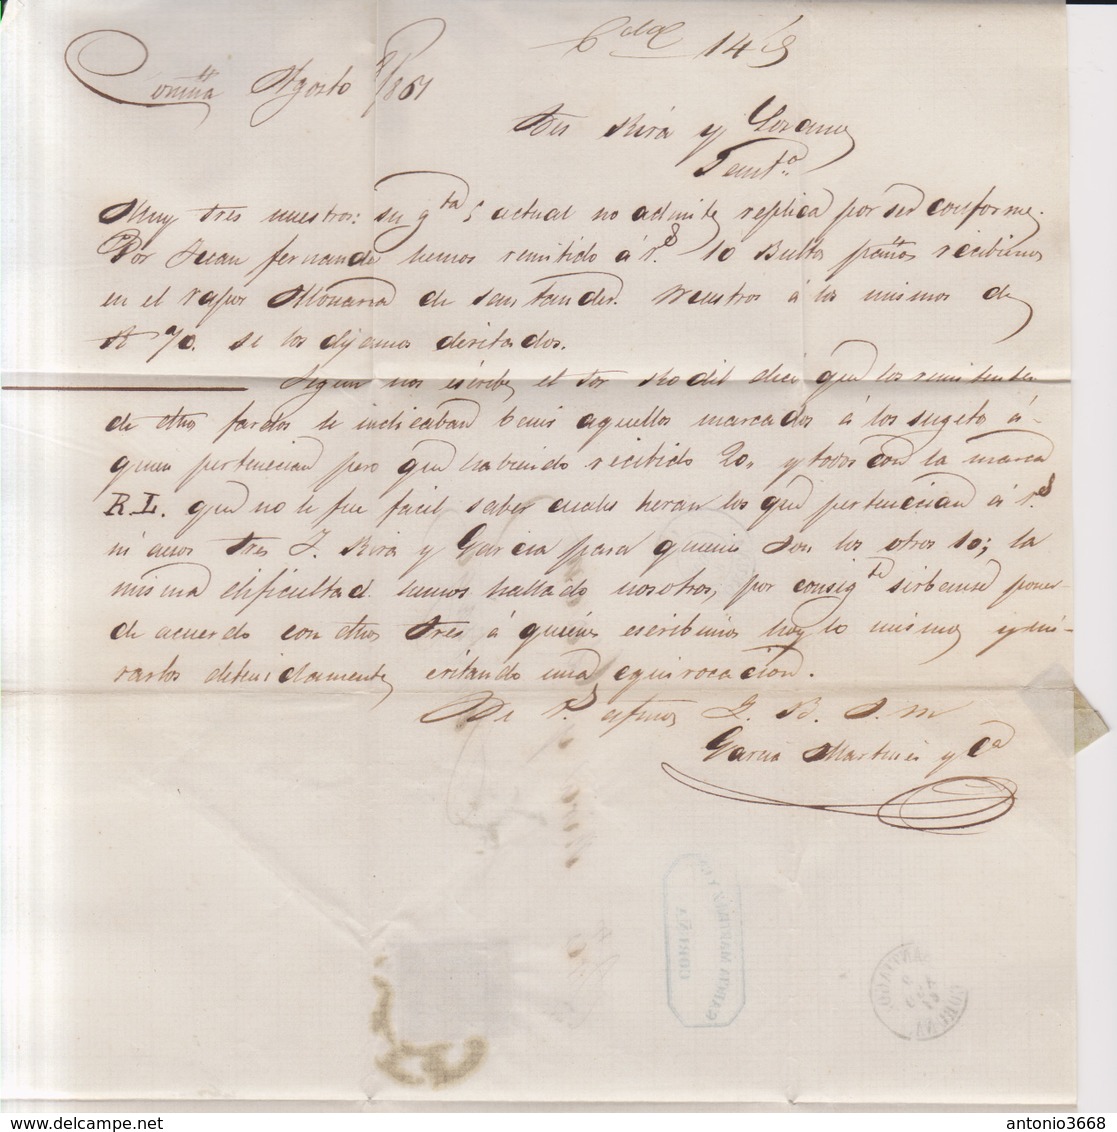 Coruña Agosto 8/1861
Sres Rivá y Lozano
Santo.
Muy Sres nuestros: su gta 5 actual no admite replica por ser conforme.
Por Juan fernande hemos remitido á Vs 10 Bultos paños recibimos
en el vapor Monarca de Santander. Nuestros á los mismos de
R 70. se los dejamos deritados.
Segun nos escribe el Sor que los remitentes
de dhos fardos le indicaban benir aquellos marcados á los sugeto á
quien pertenecian pero que habiendo recibido 20, y todos con la marca
R.L. que no le fue facil saber cuales heran los que pertenecian á Vs
ni a esos Sres J. Rivá y Garcia para quienes son los otros 10; la
misma dificultad hemos hallado nosotros, por consigte sirbanse poner-
de acuerdo con dhos Sres á quienes escribimos hoy lo mismo y mi-
rarlos detenidamente, evitando una equivocacion.
De V. afmos Q. B. S. M
Garcia Martinez y Ca
GARCIA MARTINEZ Y Cª
CORUÑA
SANTIAGO
CORUÑA
antonio3668